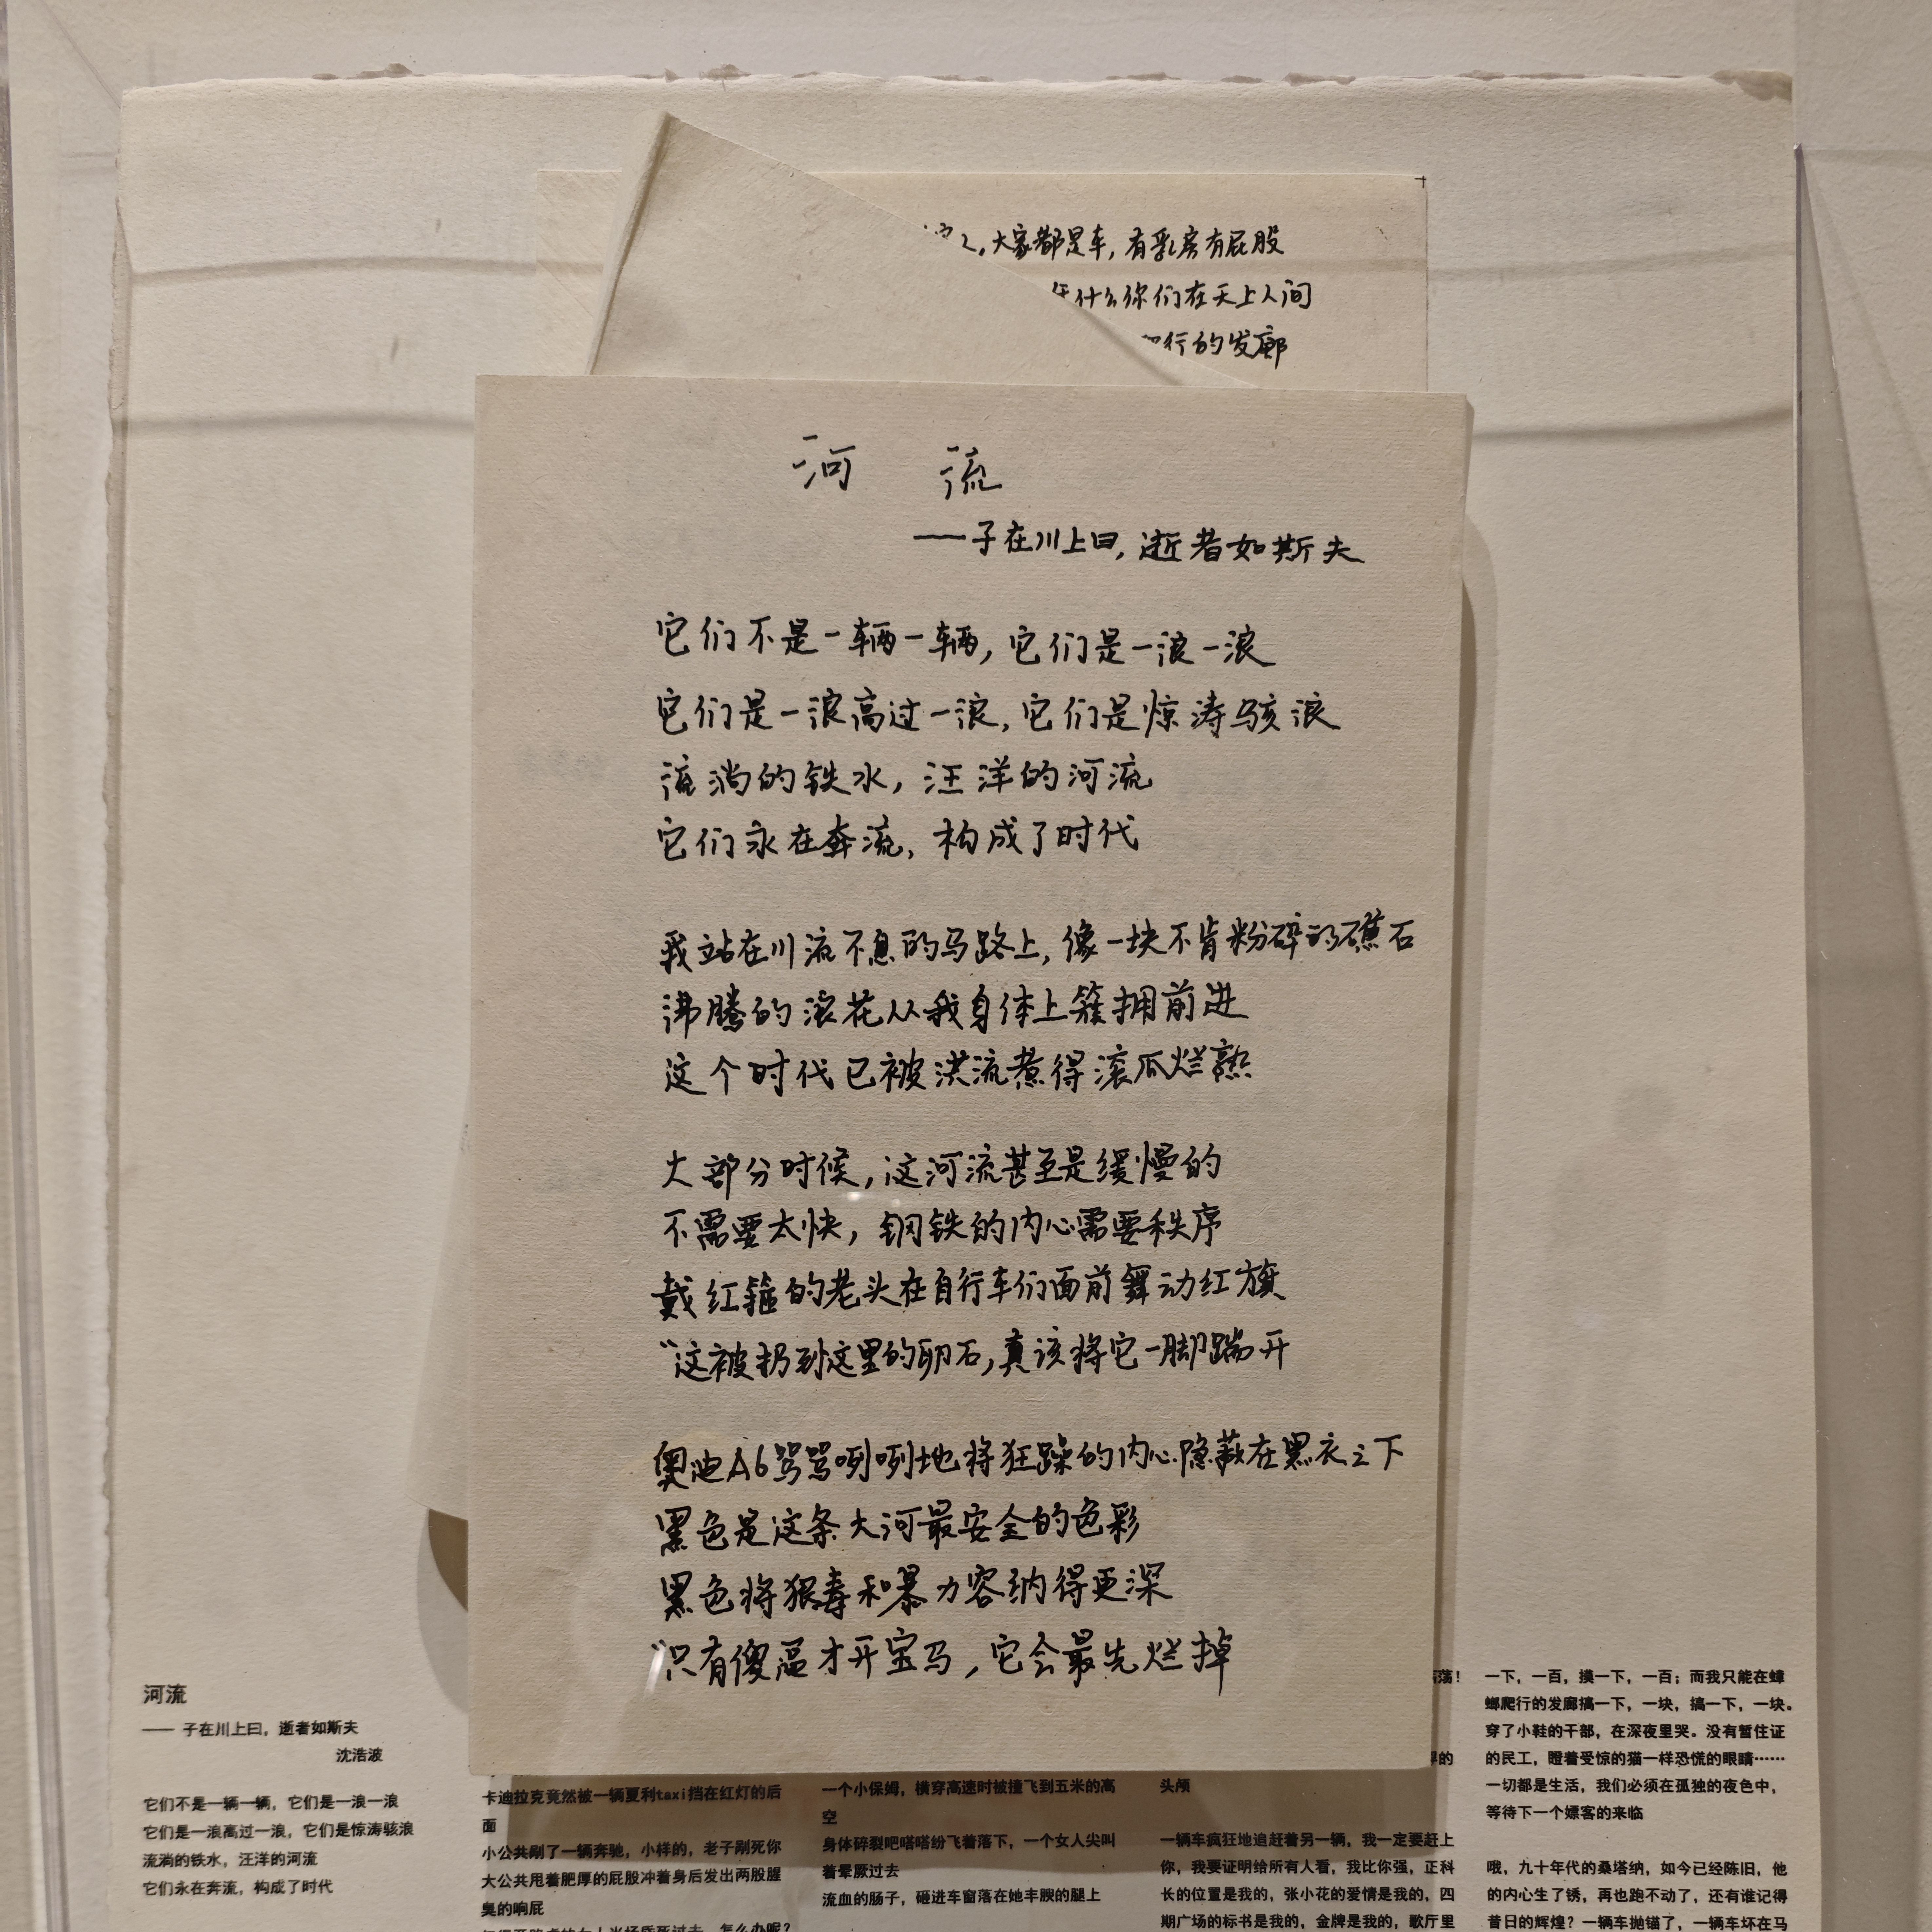 大家都是车，有乳房有屁股
什么你们在天上人间
行的发廊
河 流
——子在川上曰，逝者如斯夫
它们不是一辆一辆，它们是一浪一浪
它们是一浪高过一浪，它们是惊涛骇浪
流淌的铁水，汪洋的河流
它们永在奔流，构成了时代
我站在川流不息的马路上，像一块不肯粉碎的礁石
沸腾的浪花从我身体上簇拥前进
这个时代已被洪流煮得滚瓜烂熟
大部分时候，这河流甚至是缓慢的
不需要太快，钢铁的内心需要秩序
戴红箍的老头在自行车们面前舞动红旗
“这被扔到这里的卵石，真该将它一脚踹开
奥迪A6骂骂咧咧地将狂躁的内心隐蔽在黑衣之下
黑色是这条大河最安全的色彩
黑色将狠毒和暴力容纳得更深
“只有傻逼才开宝马，它会最先烂掉
河流
—— 子在川上曰，逝者如斯夫
沈浩波
它们不是一辆一辆，它们是一浪一浪
它们是一浪高过一浪，它们是惊涛骇浪
流淌的铁水，汪洋的河流
它们永在奔流，构成了时代
卡迪拉克竟然被一辆夏利taxi挡在红灯的后
面
小公共剐了一辆奔驰，小样的，老子剐死你
大公共甩着肥厚的屁股冲着身后发出两股腥
臭的响屁
一个小保姆，横穿高速时被撞飞到五米的高
空
身体碎裂吧嗒嗒纷飞着落下，一个女人尖叫
着晕厥过去
流血的肠子，砸进车窗落在她丰腴的腿上
荡！
的
头颅
一辆车疯狂地追赶着另一辆，我一定要赶上
你，我要证明给所有人看，我比你强，正科
长的位置是我的，张小花的爱情是我的，四
期广场的标书是我的，金牌是我的，歌厅里
一下，一百，摸一下，一百；而我只能在蟑
螂爬行的发廊搞一下，一块，搞一下，一块。
穿了小鞋的干部，在深夜里哭。没有暂住证
的民工，瞪着受惊的猫一样恐慌的眼睛……
一切都是生活，我们必须在孤独的夜色中，
等待下一个嫖客的来临
哦，九十年代的桑塔纳，如今已经陈旧，他
的内心生了锈，再也跑不动了，还有谁记得
昔日的辉煌？一辆车抛锚了，一辆车坏在马